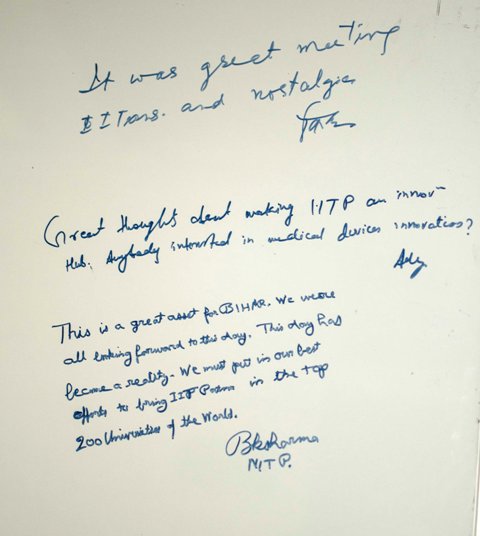 It was great meeting
IITians. and nostalgic
Great thought about making IITP an innov-
Hub. Anybody interested in medical devices innovation?
This is a great asset for BIHAR. We were
all looking forward to this day. This day has
became a reality. We must put in our best
efforts to bring IIT Patna in the top
200 Universities of the World.
Bksharma
NITP.